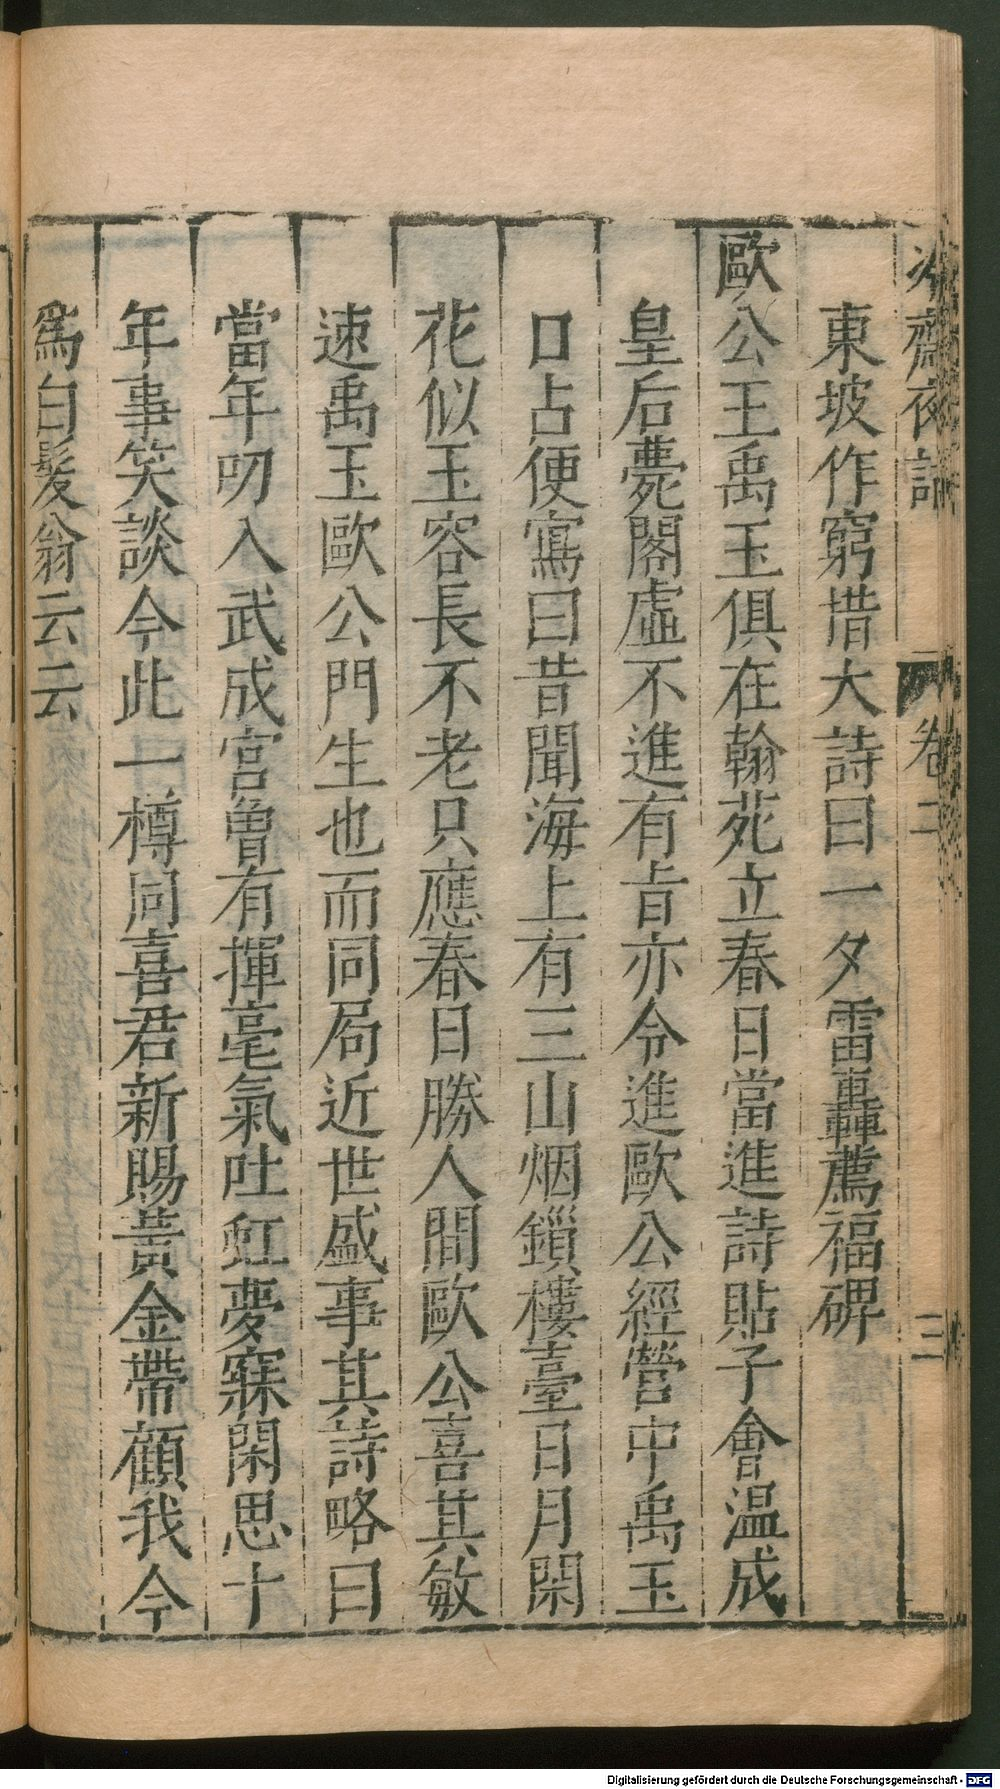 冷齋夜話 卷二 三
東坡作窮措大詩曰一夕雷轟薦福碑
歐公王禹玉俱在翰苑立春日當進詩貼子會温成
皇后薨閣虛不進有旨亦令進歐公經營中禹玉
口占便寫曰昔聞海上有三山烟鎖樓臺日月閑
花似玉容長不老只應春日勝人間歐公喜其敏
速禹玉歐公門生也而同局近世盛事其詩略曰
當年叨入武成宮曾有揮毫氣吐虹夢寐閑思十
年事笑談今此一樽同喜君新賜黃金帶顧我今
爲白髮翁云云
Digitalisierung gefördert durch die Deutsche Forschungsgemeinschaft - DFG